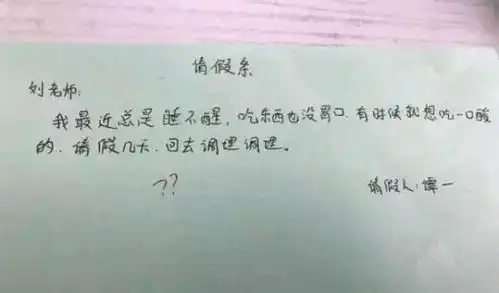 请假条
刘老师:
我最近总是睡不醒,吃东西也没胃口.有时候就想吃一口酸
的.请假几天.回去调理调理。
??
请假人:伟一